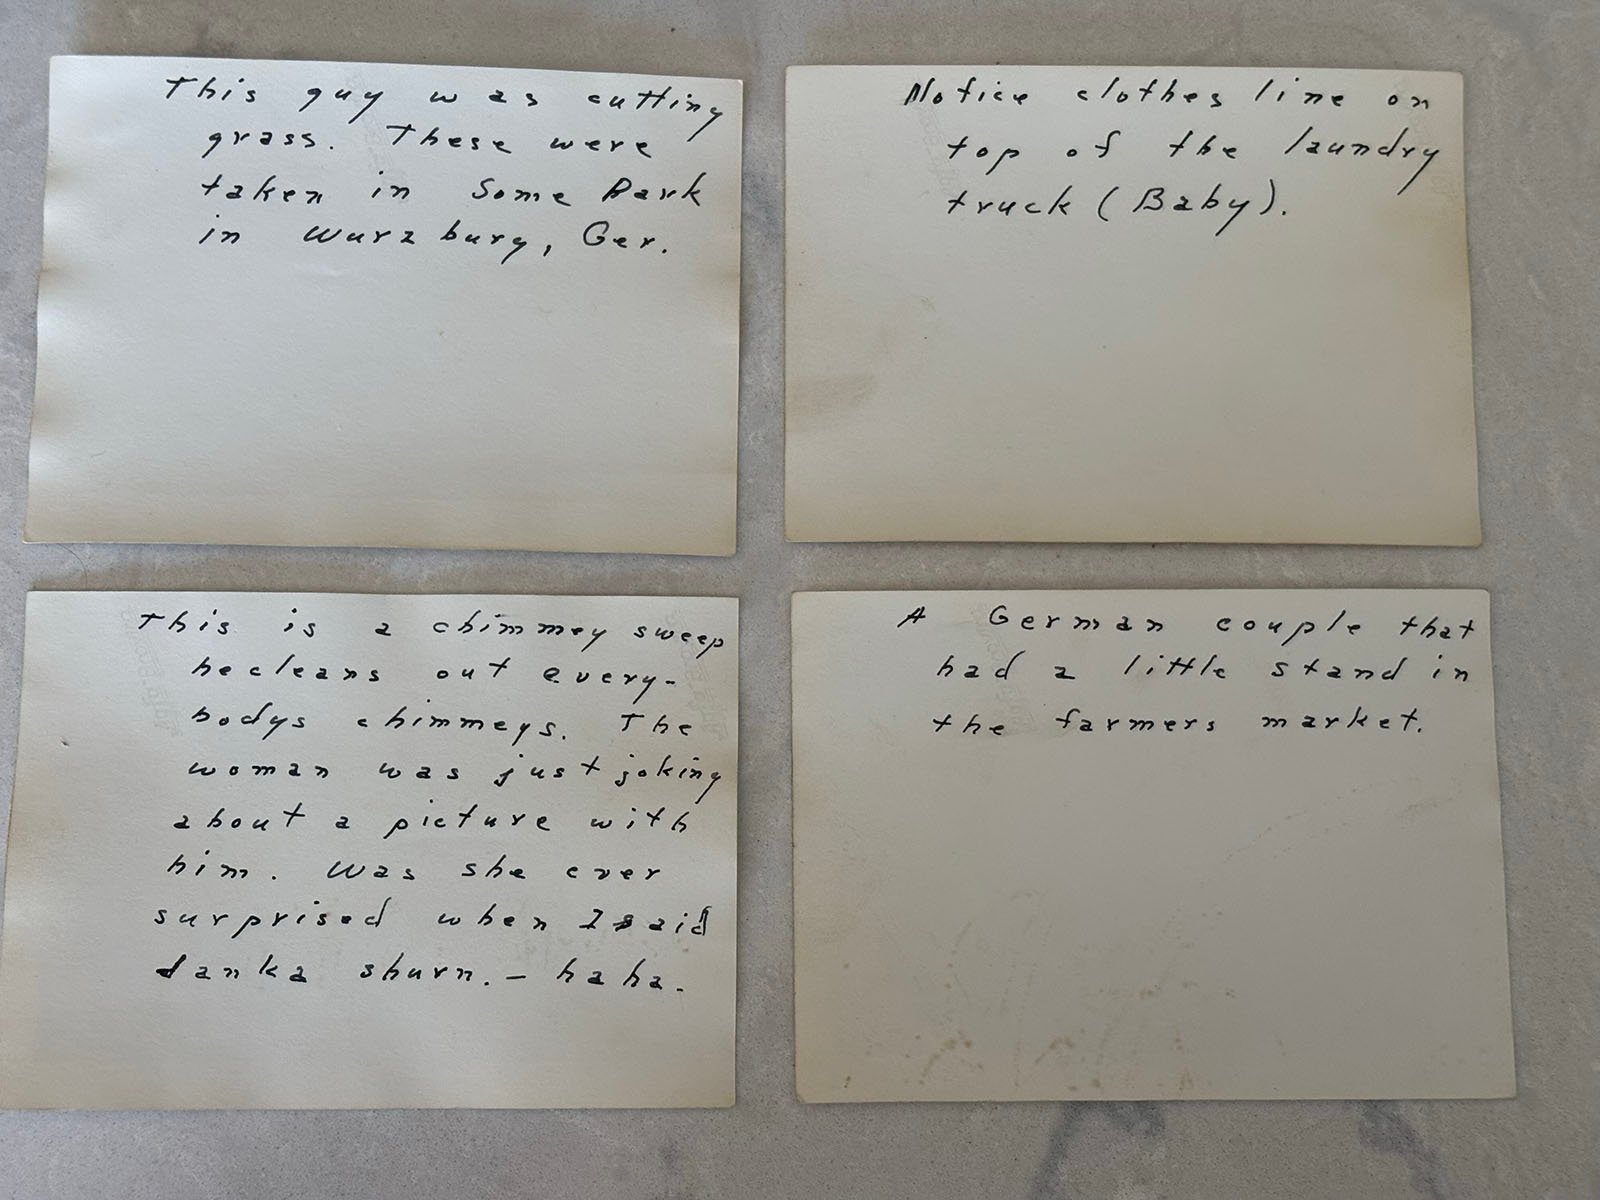 This guy was cutting
grass. These were
taken in Some Park
in Wurzburg, Ger.
Notice clothes line on
top of the laundry
truck (Baby).
This is a chimmey sweep
he cleans out every-
bodys chimmeys. The
woman was just joking
about a picture with
him. Was she ever
surprised when I said
danka shurn. - haha.
A German couple that
had a little stand in
the farmers market.